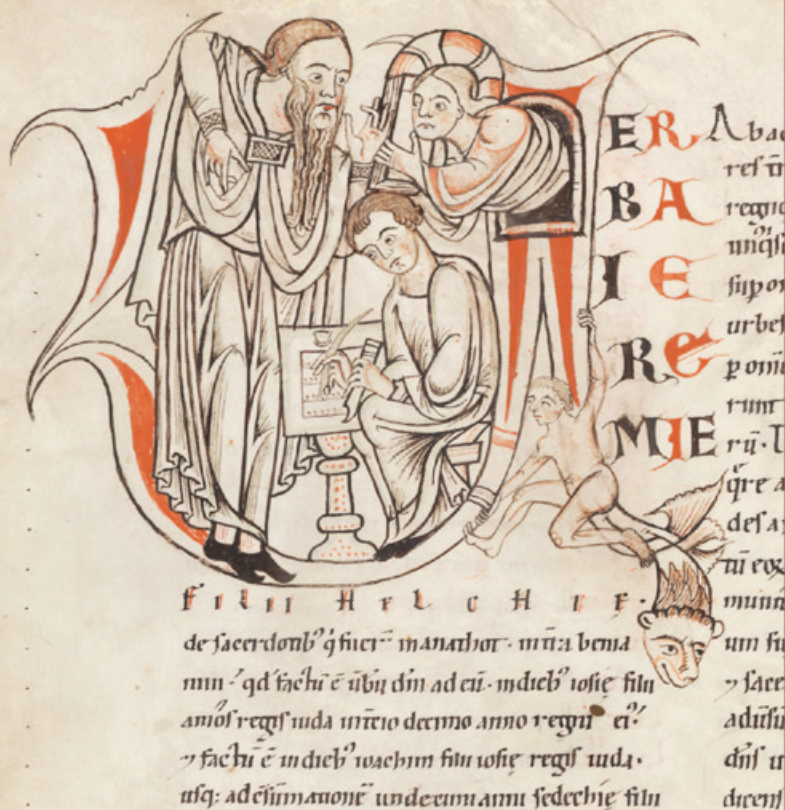 V
ER
BA
IE
RE
MIE
FILII HELCHIE.
de sacerdotib' q' fuer' in anathot. in tra benia
min. qd factū ē ūbū dm̄ ad eū. in dieb' iosię filii
amos regis iuda in tcio decimo anno regni ei'.
⁊ factū ē in dieb' ioachim filii iosię regis iuda.
usq: ad csūmationē undecimi anni sedechię filii
Abac
regno
urbes
p omi
runt
rū.
q̄re a
def a
um fi
⁊ sace
dns u
dicens